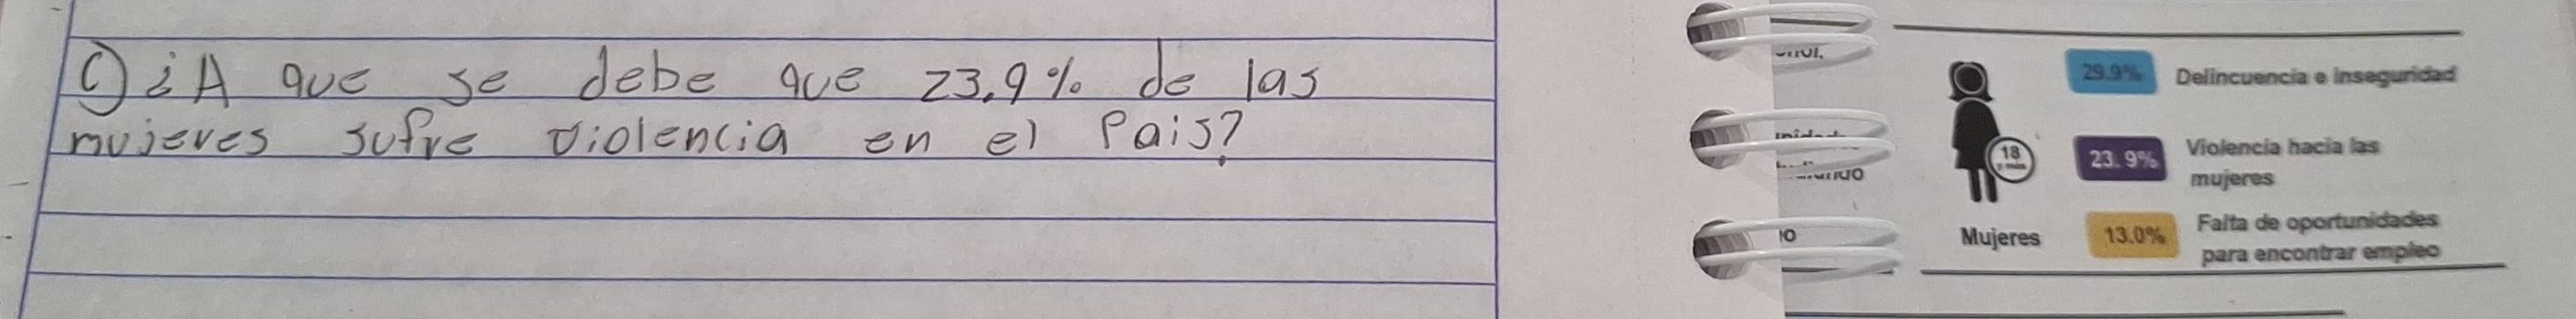 C) ¿A que se debe que 23.9% de las
mujeres sufre violencia en el Pais?
29.9% Delincuencia e inseguridad
18
23.9% Violencia hacia las
mujeres
Mujeres
13.0% Falta de oportunidades
para encontrar empleo